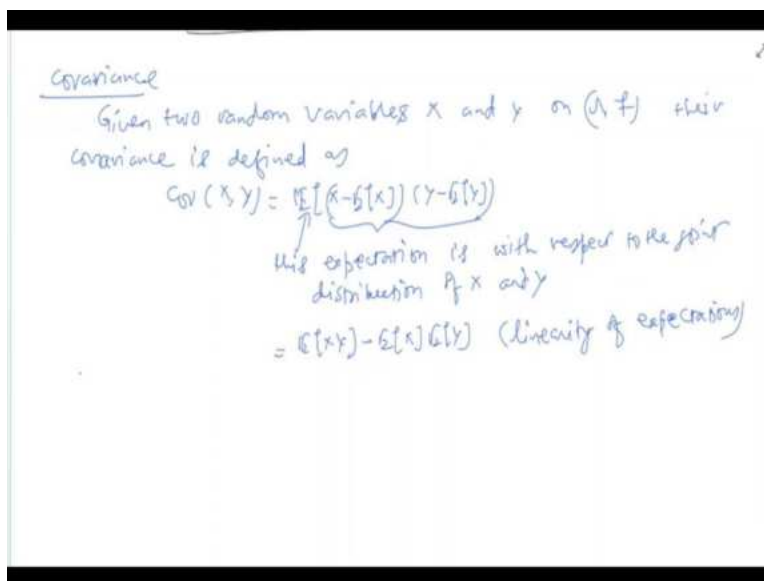 Covariance
Given two random variables X and Y on (Ω, F) their
covariance is defined as
Cov(X,Y) = 𝔼[(X-𝔼[X]) (Y-𝔼[Y])
this expectation is with respect to the joint
distribution of X and Y
= 𝔼[XY] - 𝔼[X] 𝔼[Y] (linearity of expectations)